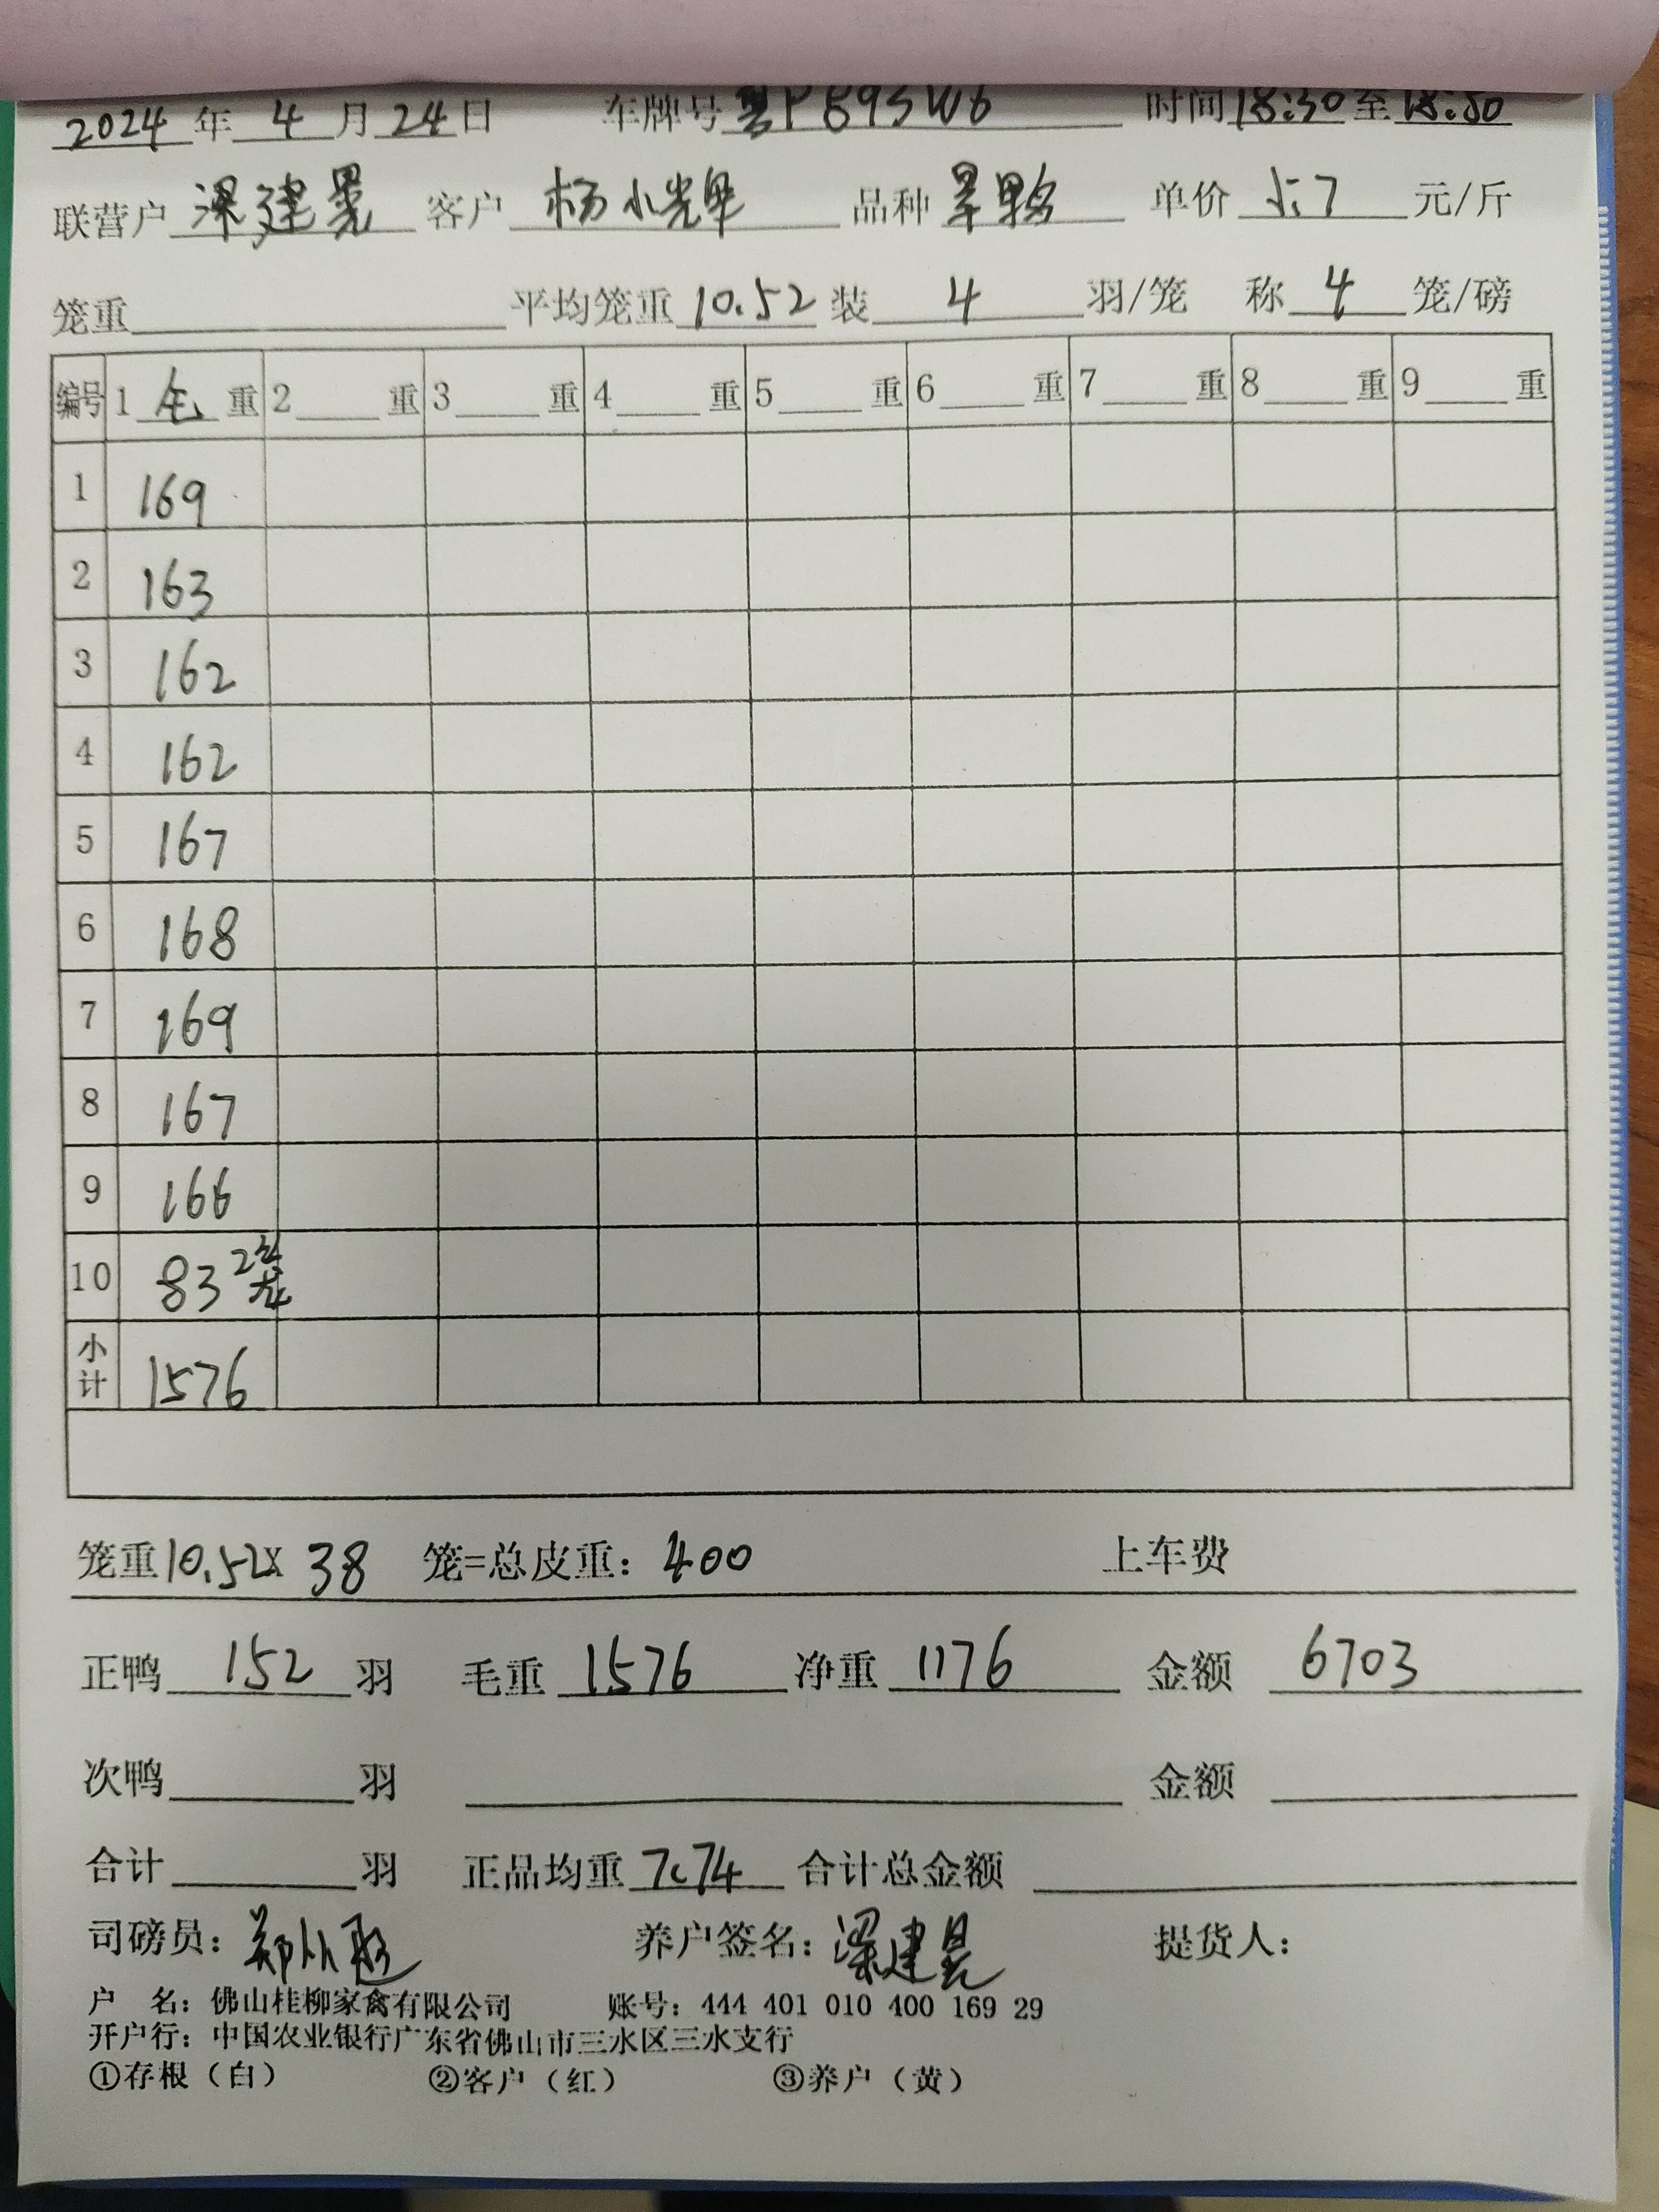 2024年4月24日 车牌号粤P893W6 时间18:30至18:50
联营户梁建 客户杨小 品种 单价5.7元/斤
笼重 平均笼重10.52装4羽/笼 称4笼/磅
编号 1毛重 2重 3重 4重 5重 6重 7重 8重 9重
1 169
2 163
3 162
4 162
5 167
6 168
7 169
8 167
9 166
10 83 2笼
小计 1576
笼重10.52X38 笼=总皮重：400 上车费
正鸭152羽 毛重1576 净重1176 金额6703
次鸭 羽 金额
合计 羽 正品均重7.74 合计总金额
司磅员：郑 养户签名：梁建 提货人：
户 名：佛山桂柳家禽有限公司 账号：444 401 010 400 169 29
开户行：中国农业银行广东省佛山市三水区三水支行
①存根（白） ②客户（红） ③养户（黄）